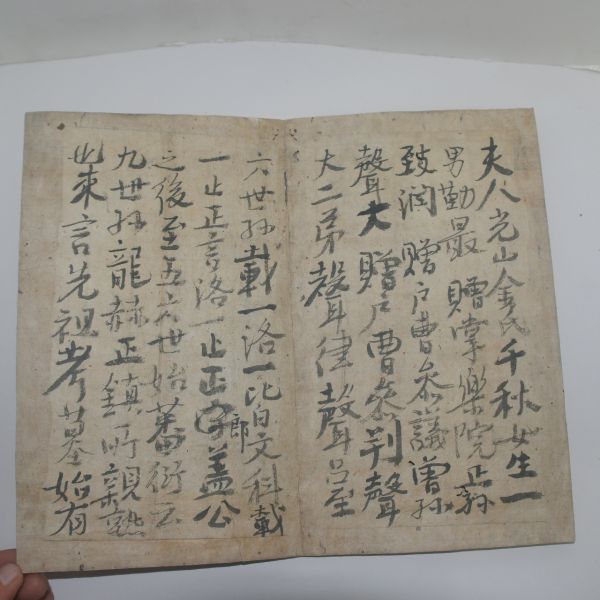 夫人光山金氏千秋女生一
男勤最贈掌樂院正孫
致潤贈戶曹參議曾孫
聲大贈戶曹參判聲
大二弟聲律聲呂至
六世孫載一洛一比自文科載
一止正言洛一止正字盖公
郎
之後至五六世始蕃衍云
九世孫龍赫正鎮所親熟
也來言先祖考墓始有